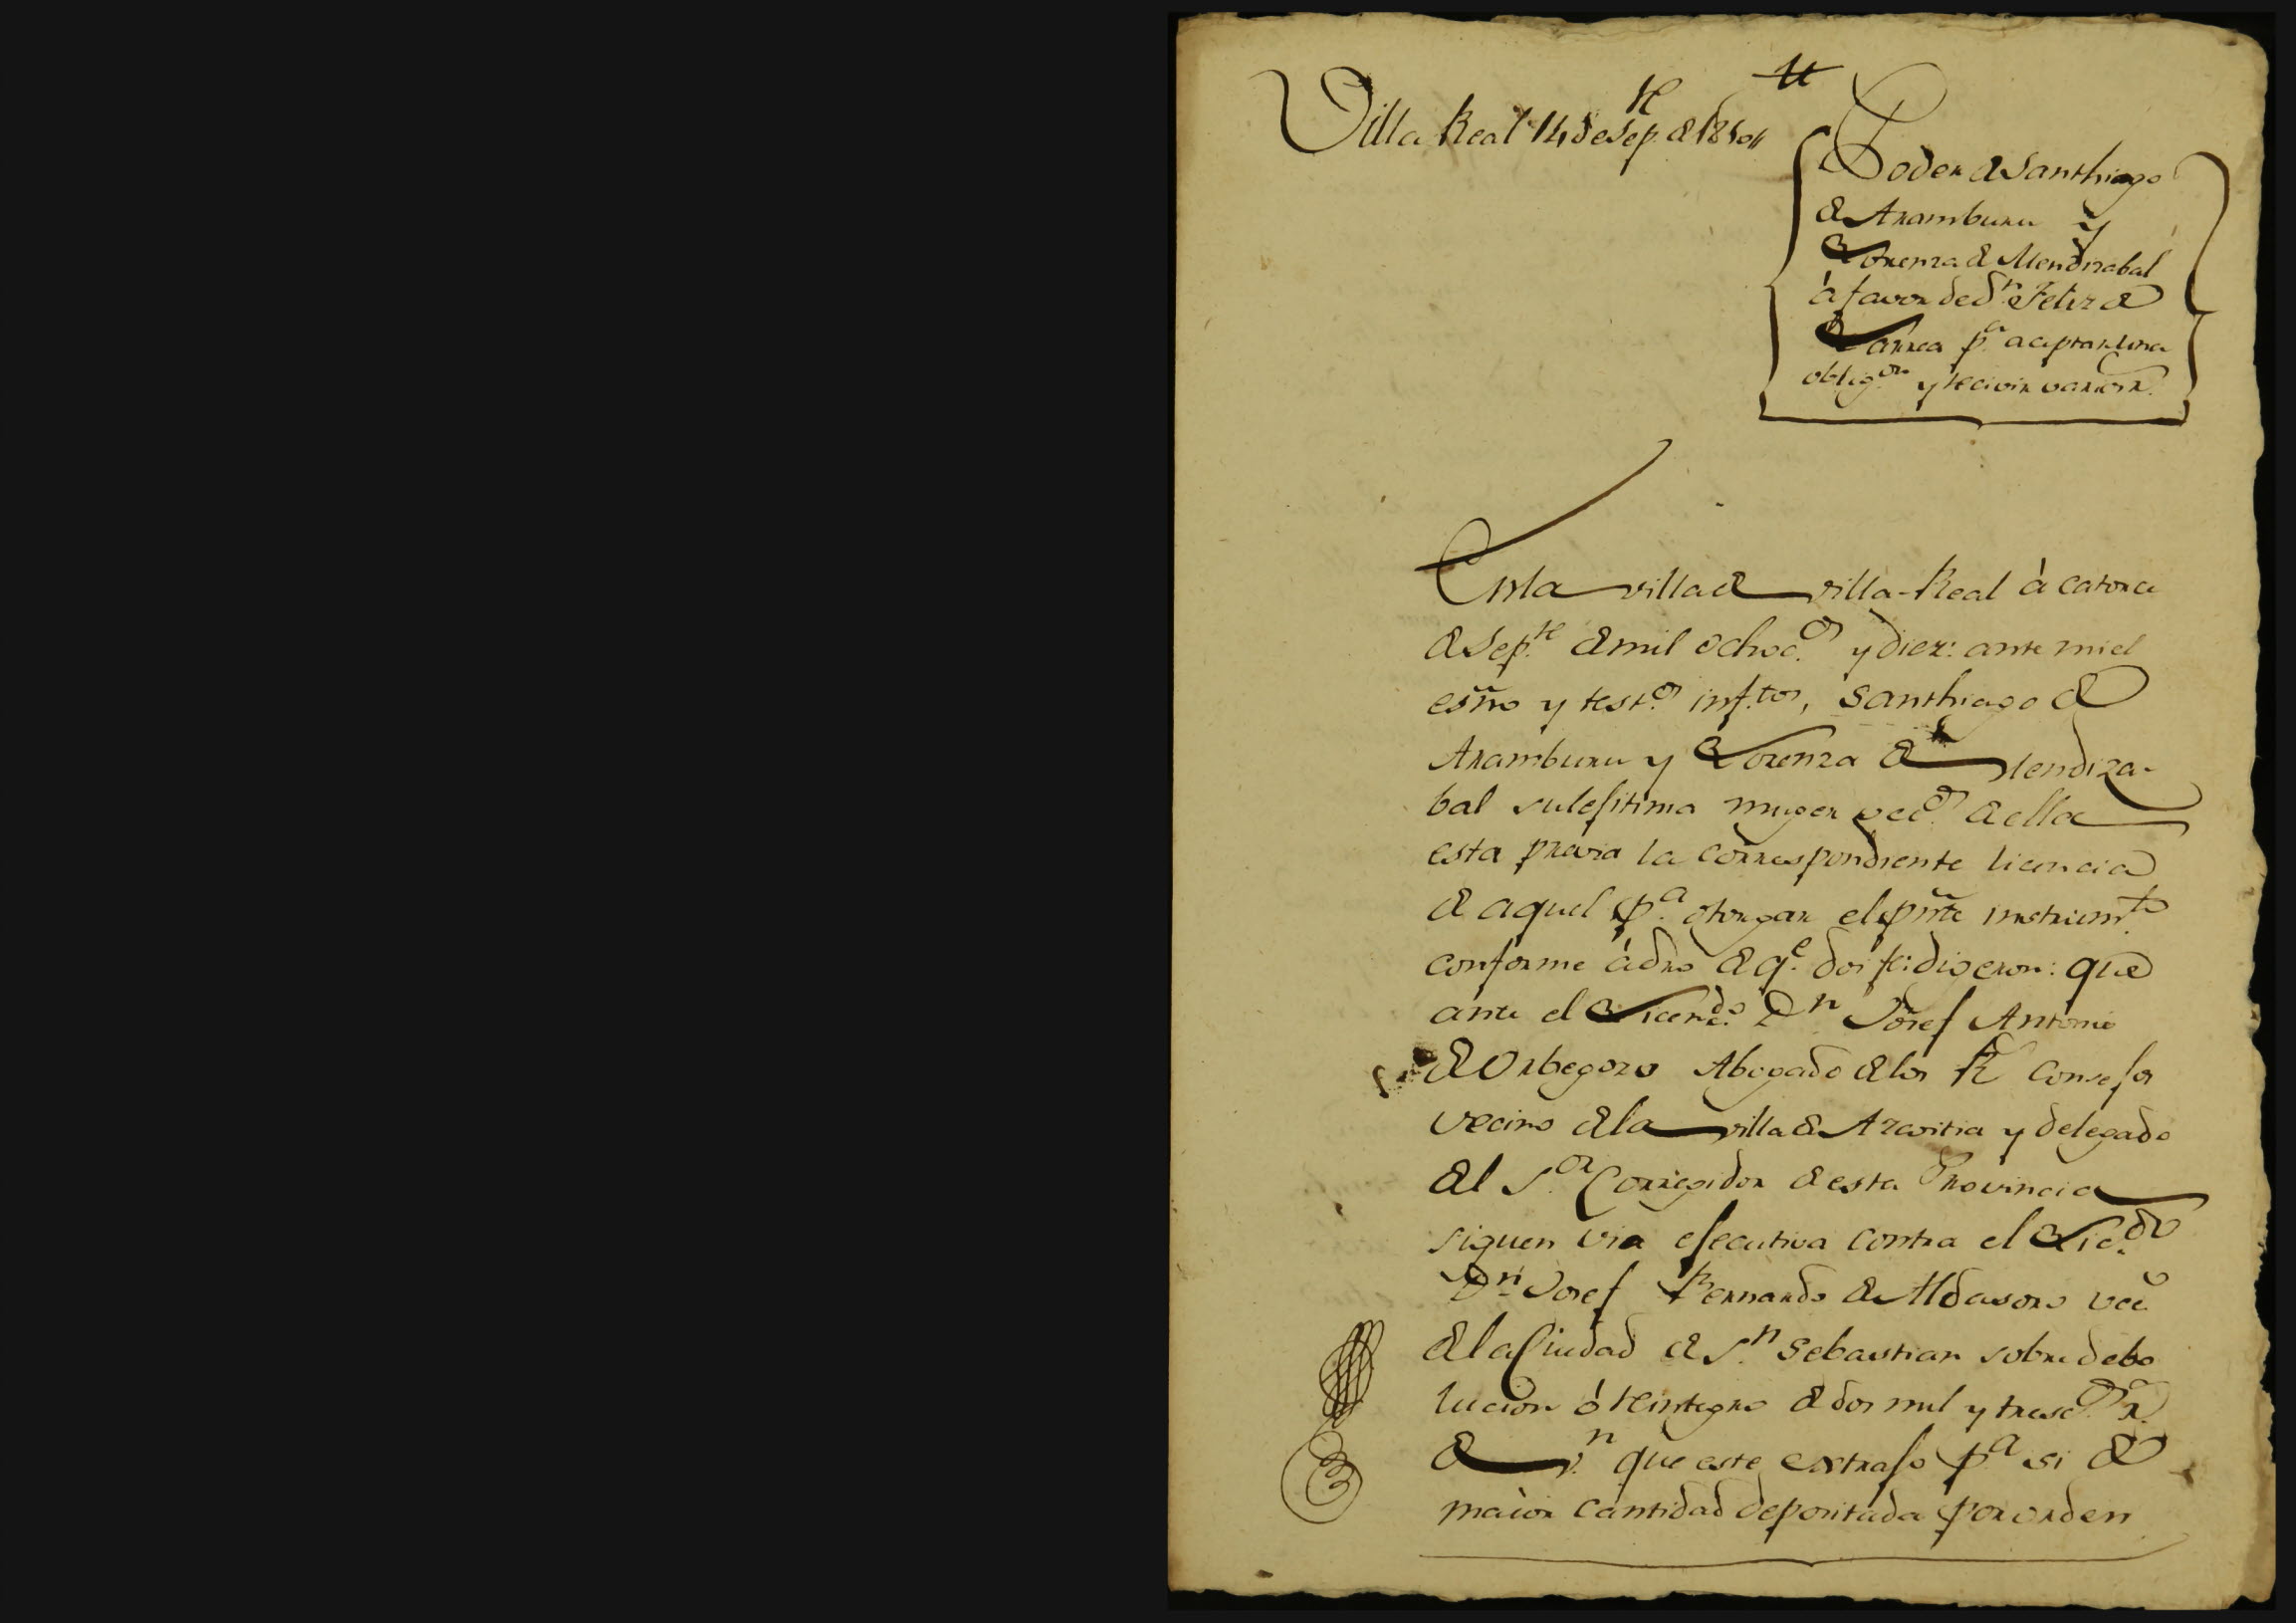 Villa Real 14 de Sep.te de 1810,,
Poder de Santhiago
de Aramburu y
Lorenza de Mendizabal
á favor de d.n Feliz de
Larrea p.a aceptar una
oblig.on y recivir varios r.
Enla villa de villa-Real à catorce
de Sep.re de mil ochoc.os y diez: ante mi el
esño y test.os inf.tos, Santhiago de
Aramburu y Lorenza de Mendiza-
bal su lejitima muger vec.os de ella
esta previa la correspondiente licencia
de aquel p.a otorgar el pñte instrum.to
conforme á dro de q.e doi fe: digeron: que
ante el Licenc.do D.n Josef Antonio
de Orbegozo Abogado de los R.s Consejos
vecino de la villa de Azcoitia y delegado
del S.or Corregidor de esta Provincia
siguen via ejecutiva contra el Lic.do
D.n Josef Bernardo de Aldasoro vec.o
de la Ciudad de S.n Sebastian sobre debo
lucion ó reintegro de dos mil y tresc.os r.s
de v.n que este extrajo p.a si de
maior cantidad depositada por orden